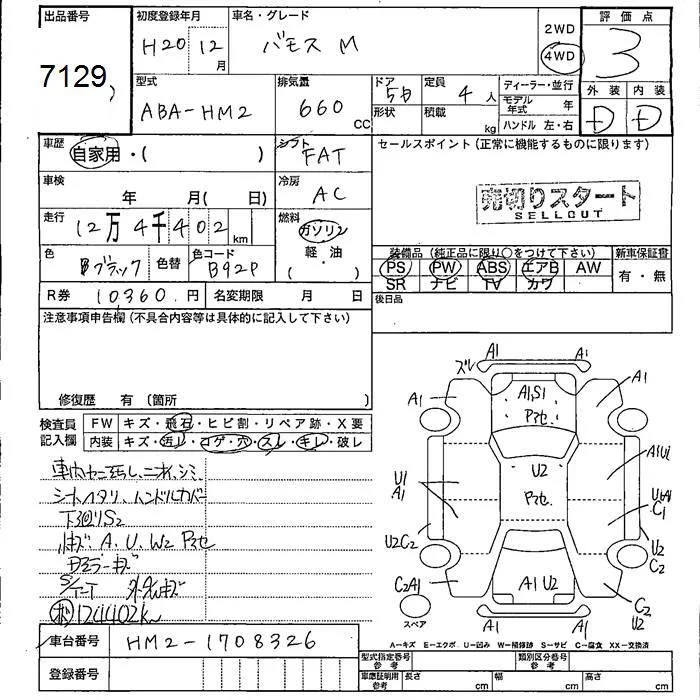 出品番号
7129
初度登録年月
H20 12
月
車名・グレード
バモス M
2WD
4WD
評価点
3
型式
ABA-HM2
排気量
660
CC
ドア
5D
形状
定員
4 人
積載
kg
ディーラー・並行
モデル年式 年
ハンドル 左・右
外装
内装
D
D
車歴
自家用・( )
シフト
FAT
セールスポイント(正常に機能するものに限ります)
車検
年 月( 日)
冷房
AC
売切りスタート
SELLOUT
走行
12万4千402
km
燃料
ガソリン
軽・油
( )
色
ブラック
色替
色コード
B92P
装備品(純正品に限り○をつけて下さい)
PS PW ABS エアB AW
SR ナビ TV カワ
新車保証書
有・無
R券
10360 円
名変期限 月 日
後日品
注意事項申告欄(不具合内容等は具体的に記入して下さい)
修復歴 有(箇所 )
検査員記入欄
FW キズ・飛石・ヒビ割・リペア跡・X要
内装 キズ・汚れ・コゲ・穴・スレ・キレ・破レ
シートヘタリ、ハンドルカバー
下廻りS2
A. U. W2 アセ
124402k
ズレ A1 A1
A1
A1,S1
アセ
A1
U1
A1
U2
アセ
A1U1
C1
U2C2
U2
C2
C2A1
A1 U2
C2
U2
スペア
A1 A1
A-キズ E-エクボ U-凹み W-補修跡 S-サビ C-腐食 XX-交換済
車台番号
HM2-1708326
登録番号
型式指定番号 参考
類別区分番号 参考
車庫証明用 参考
長さ cm
幅 cm
高さ cm